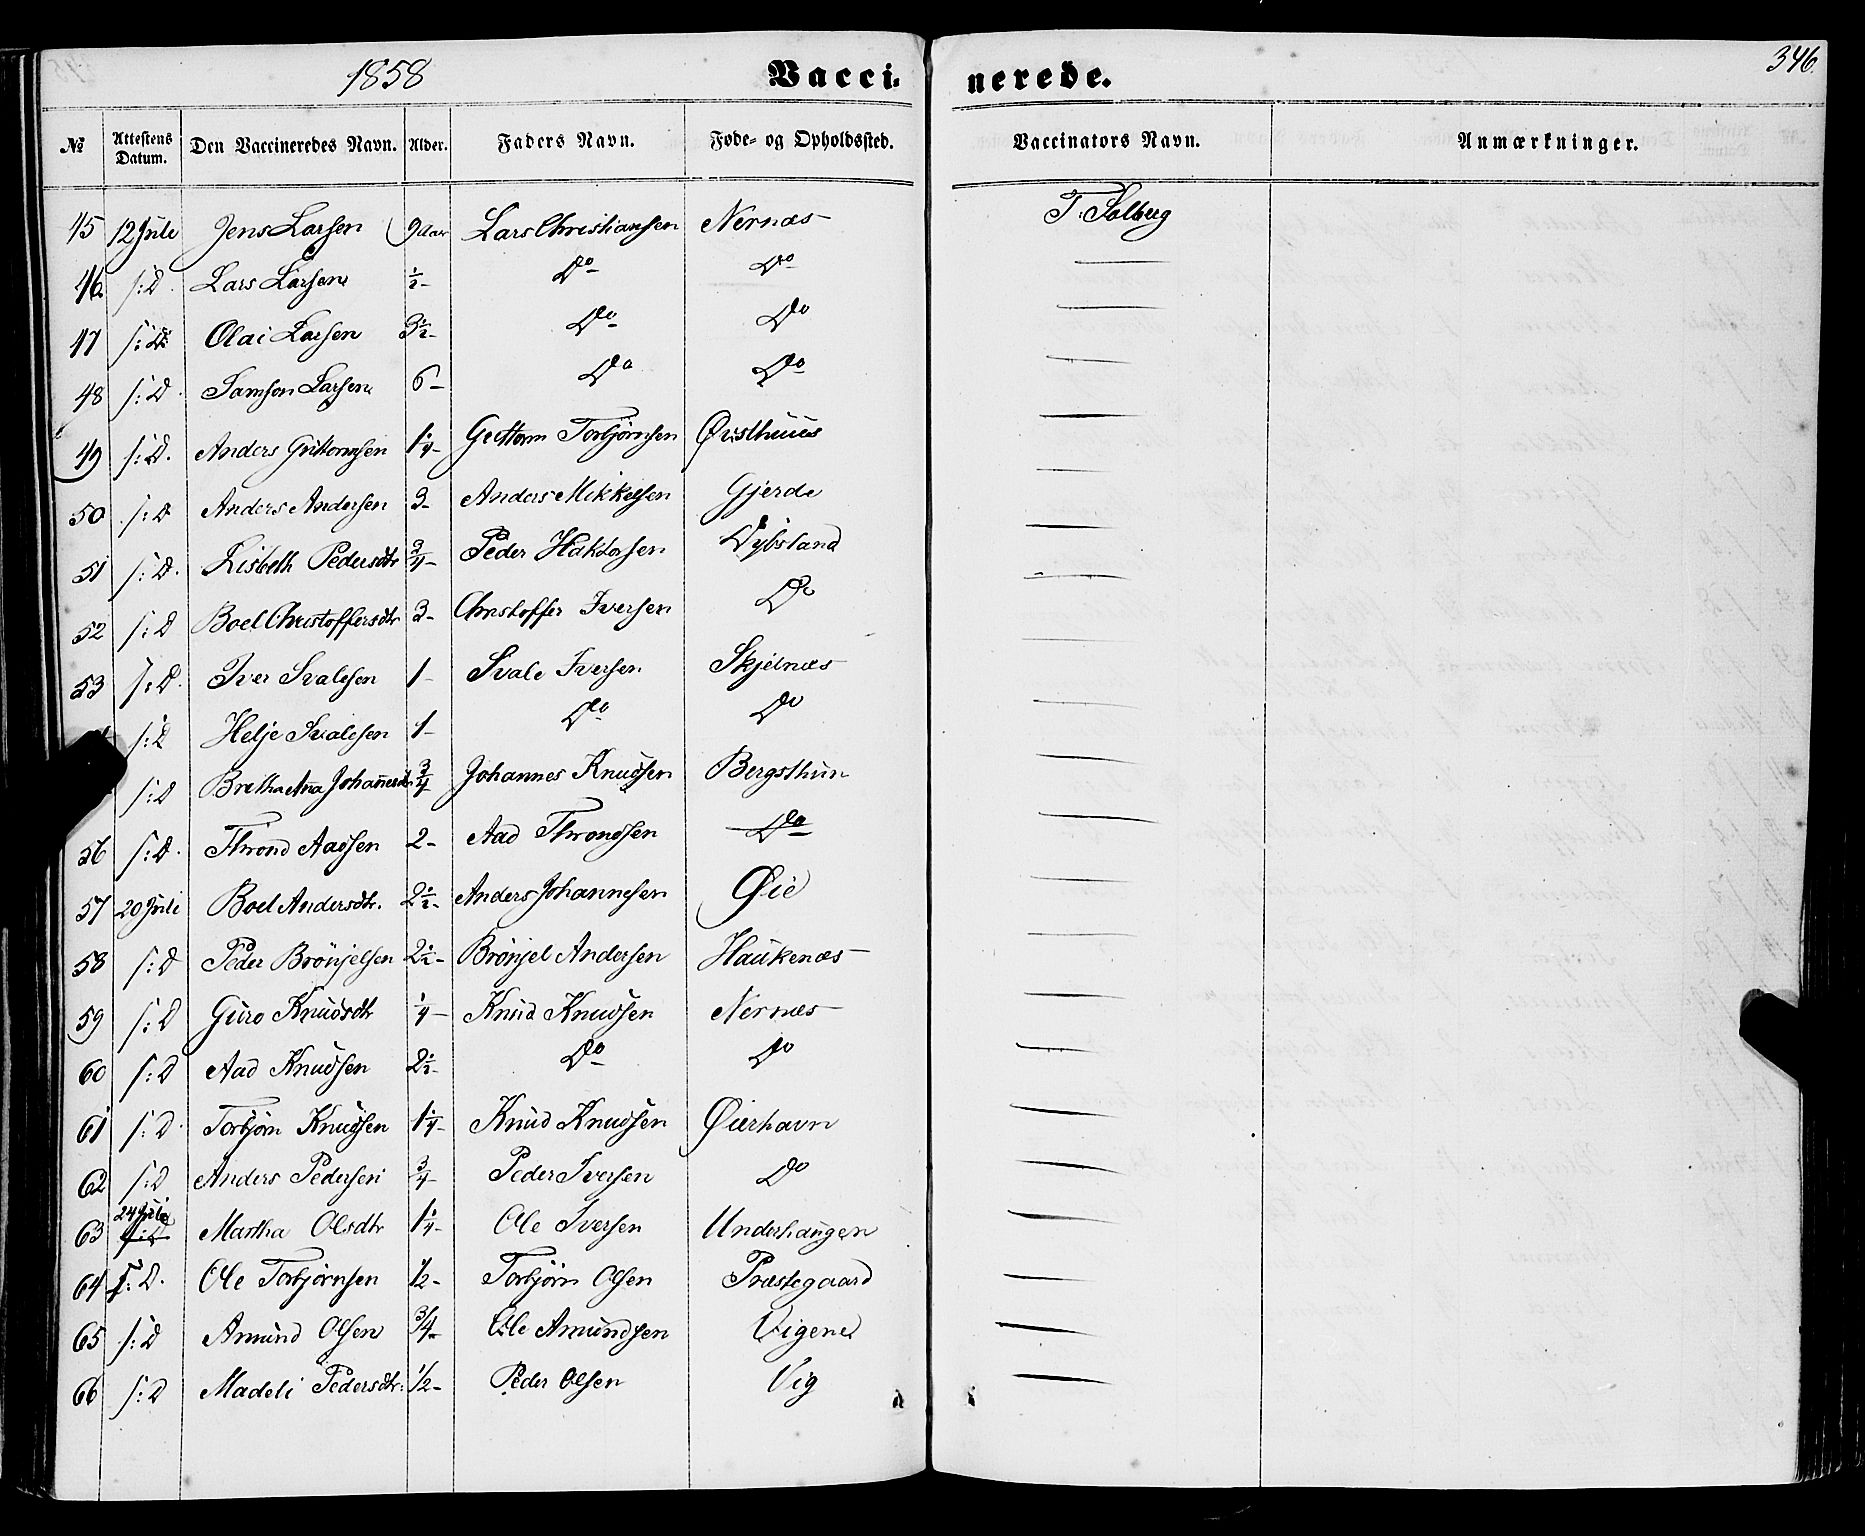 1858 Vacci- nerede. 346.
№ Attestens Datum. Den Vaccineredes Navn. Alder. Faders Navn. Føde- og Opholdssted. Vaccinators Navn. Anmærkninger.
45 12 Juli Jens Larsen 9 Aar Lars Christiansen Nernæs T. Solberg
46 s: D. Lars Larsen ½- Do Do —
47 s: D Olai Larsen 3½- Do Do —
48 s: D. Samson Larsen 6- Do Do —
49 s: D. Anders Guttormsen 1¼- Guttorm Torbjørnsen Øvsthuus —
50 s: D Anders Andersen 3- Anders Mikkelsen Gjerde —
51 s: D. Lisbeth Pedersdtr ¾- Peder Haktorsen Dybsland —
52 s: D Boel Christoffersdtr 3- Christoffer Iversen Do —
53 s: D. Iver Svalesen 1- Svale Iversen Skjelnæs —
s: D Helje Svalesen 1- Do Do —
s: D Bretha Anna Johannesdtr ¾ Johannes Knudsen Bergsthun —
56 s: D. Thrond Aadsen 2- Aad Throndsen Do —
57 20 Juli Boel Andersdtr. 2½- Anders Johannesen Øie —
58 s: D Peder Brønjelsen 2½- Brønjel Andersen Haukenæs —
59 s: D Guro Knudsdtr ¼- Knud Knudsen Nernæs —
60 s: D Aad Knudsen 2½- Do Do —
61 s: D. Torbjørn Knudsen 1¼- Knud Knudsen Øierhavn —
62 s: D Anders Pedersen ¾- Peder Iversen Do —
63 24 Juli Martha Olsdtr 1¼- Ole Iversen Underhaugen —
64 s: D. Ole Torbjørnsen ½- Torbjørn Olsen Præstegaard —
65 s: D Amund Olsen ¾- Ole Amundsen Vigene —
66 s: D Madeli Pedersdtr: ½- Peder Olsen Vig —